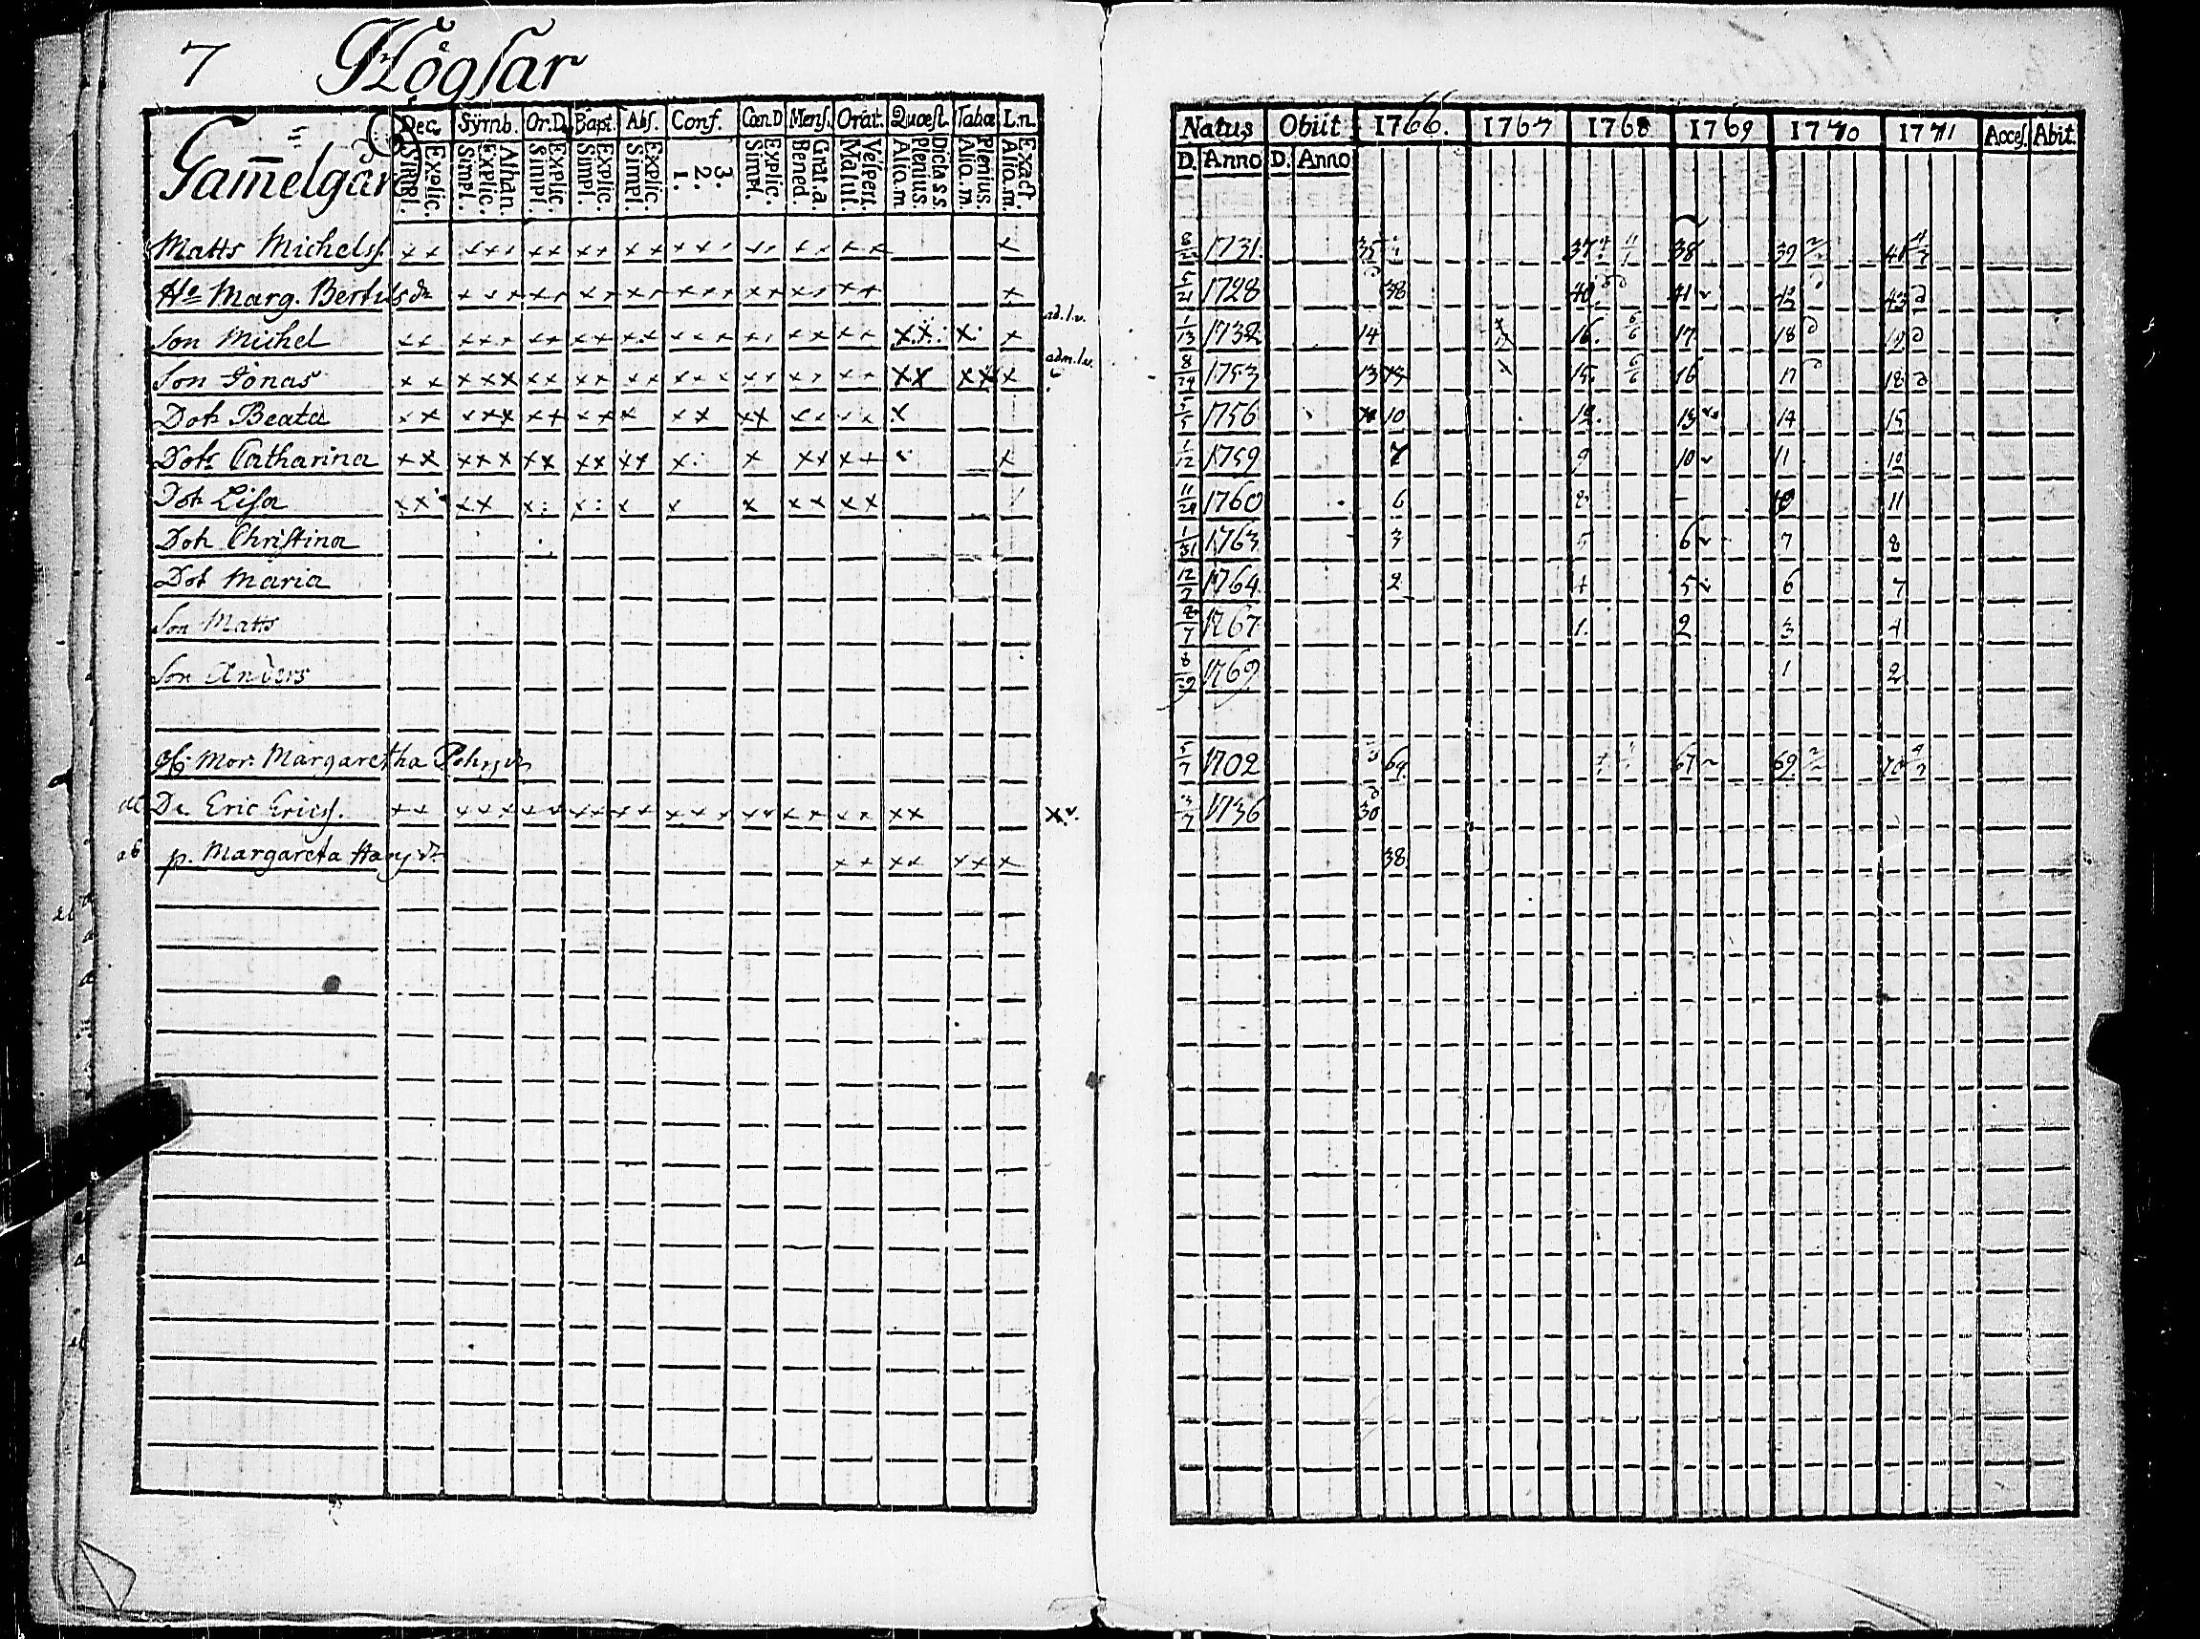 7 Högsar
Gam̄elgård
Dec. Sÿmb. Or.D. Bapt. Abs. Conf. CœnD Mens. Orat. Quæst. Tabæ I.n.
Simpl. Explic. Simpl. Explic. Athan. Simpl. Explic. Simpl. Explic. Simpl. Explic. 1. 2. 3. Simpl. Explic. Bened. Grat.a. Matut. Vespert. Aliq.m. Plenius. Dicta s.s. Aliq.m. Plenius. Aliq.m. Exact
Natus Obiit 1766. 1767 1768 1769 1770 1771 Acces. Abit.
D. Anno D. Anno
Matts Michelss. 1731. 35 37 38 39
Hu Marg. Bertils dr 5/21 1728 38 40 41 42 43
ad.l.v.
Son Michel 1/13 14 16. 6/6 17 18 19
adm.l.v.
Son Jonas 1753 13 15. 6/6 16 17 18
Dotr Beata 1756 10 12. 13 14 15
Dotr Catharina 1/12 1759 7 9 10 11 12
Dotr Lisa 1760 6 11
Dotr Christina 1/31 1763 3 5 6 7 8
Dot Maria 12/7 1764 2 4 5 6 7
Son Matts 1767 1. 2 3 4
Son Anders 1769 1 2
Mor. Margaretha Pehrsdr 5/7 1702 64 67 69 70
De Eric Ericss. 3/7 1736 30
ab p. Margareta Hansdr 38